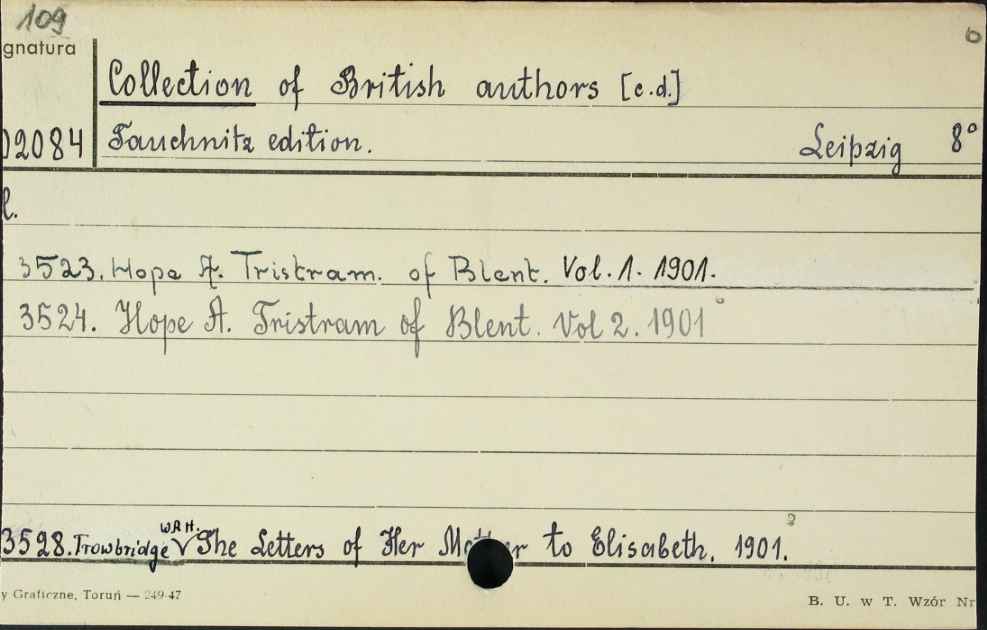 109
gnatura
Collection of British authors [c.d.]
02084 Tauchnitz edition. Leipzig 8°
l.
3523. Hope A. Tristram. of Blent. Vol. 1. 1901.
3524. Hope A. Tristram of Blent. Vol 2. 1901
W.R.H.
3528. Trowbridge V The Letters of Her Mother to Elisabeth. 1901.
y Graficzne, Toruń — 249-47 B. U. w T. Wzór Nr